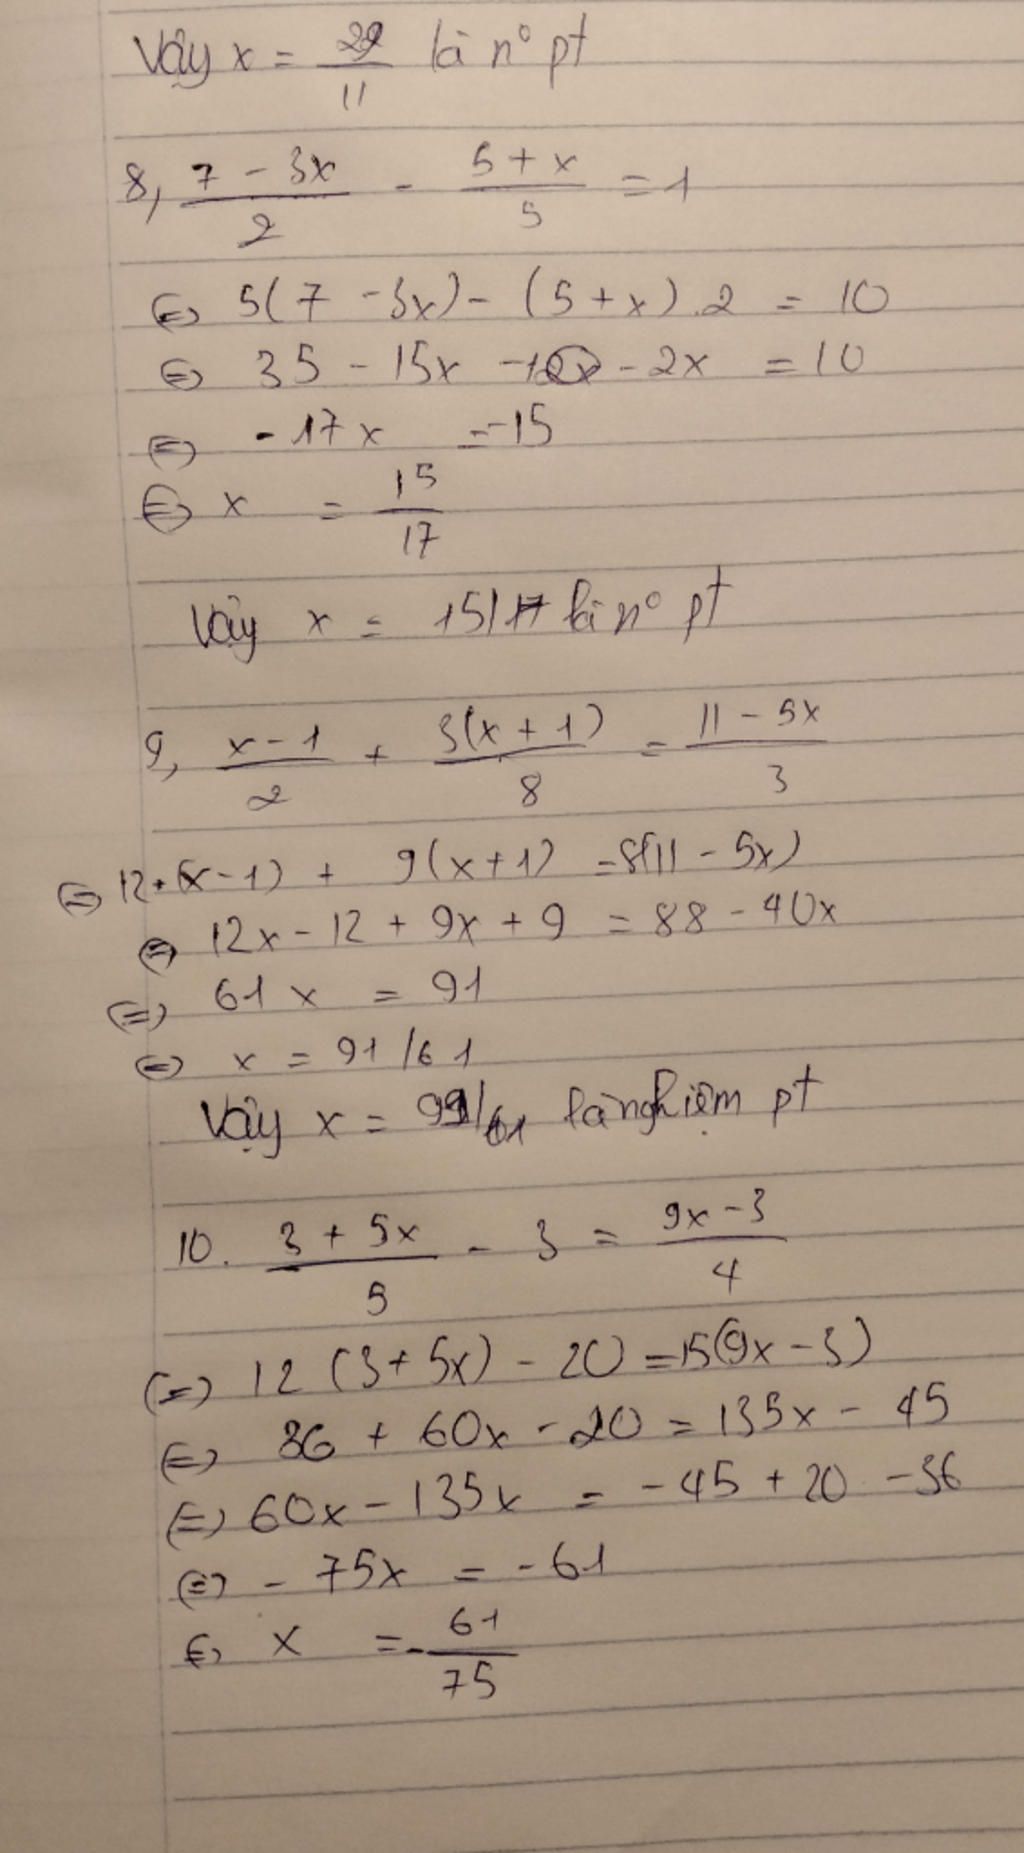 Vậy x = 29/11 là n° pt
8, (7 - 3x)/2 - (5 + x)/5 = 1
⇔ 5(7 - 3x) - (5 + x).2 = 10
⇔ 35 - 15x - 10 - 2x = 10
⇔ - 17x = -15
⇔ x = 15/17
Vậy x = 15/17 là n° pt
9, (x - 1)/2 + 3(x + 1)/8 = (11 - 5x)/3
⇔ 12.(x - 1) + 9(x + 1) = 8(11 - 5x)
⇔ 12x - 12 + 9x + 9 = 88 - 40x
⇔ 61x = 91
⇔ x = 91/61
Vậy x = 91/61 là nghiệm pt
10. (3 + 5x)/5 - 3 = (9x - 3)/4
⇔ 12 (3 + 5x) - 20 = 15(9x - 3)
⇔ 36 + 60x - 20 = 135x - 45
⇔ 60x - 135x = - 45 + 20 - 36
⇔ - 75x = - 61
⇔ x = - 61/75